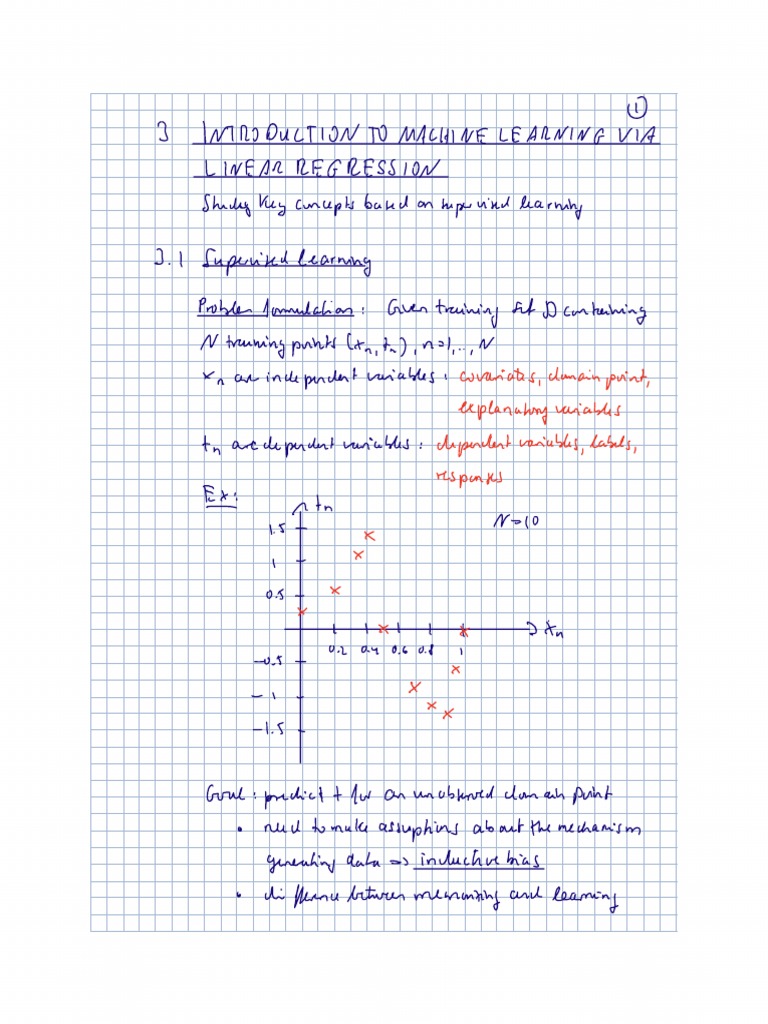 ①
3 INTRODUCTION TO MACHINE LEARNING VIA
LINEAR REGRESSION
Study key concepts based on supervised learning
3.1 Supervised Learning
Problem formulation : Given training set D containing
N training points (xn, tn), n=1,..,N
xn are independent variables : covariates, domain point,
explanatory variables
tn are dependent variables : dependent variables, labels,
responses
Ex:
tn
N=10
1.5
1
0.5
xn
0.2 0.4 0.6 0.8 1
-0.5
-1
-1.5
Goal : predict t for an unobserved domain point
• need to make assumptions about the mechanism
generating data => inductive bias
• difference between memorizing and learning